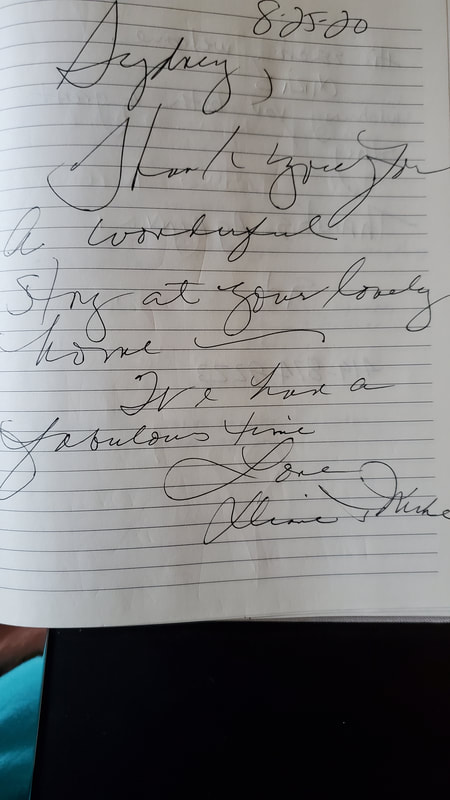 8-25-20
Sydney,
Thank you for
a wonderful
stay at your lovely
home
I've had a
fabulous time
Love